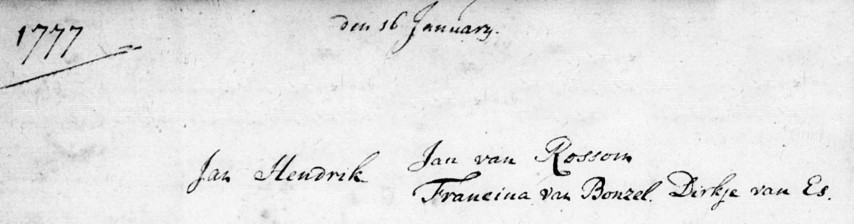 1777
den 16 January.
Jan Hendrik Jan van Rossom
Francina van Bonzel. Dirkje van Es.